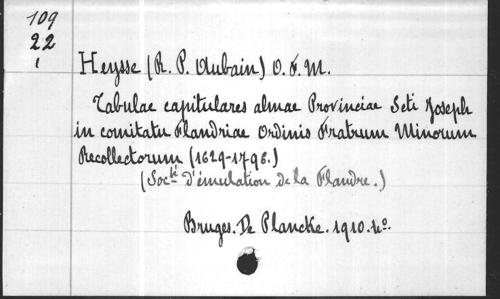 109
22
1
Heysse (R. P. Aubain) O. F. M.
Tabulae capitulares almae Provinciae Scti Joseph
in comitatu Flandriae Ordinis Fratrum Minorum
Recollectorum (1629-1796.)
(Socté d'émulation de la Flandre.)
Bruges. De Plancke. 1910. 4o.